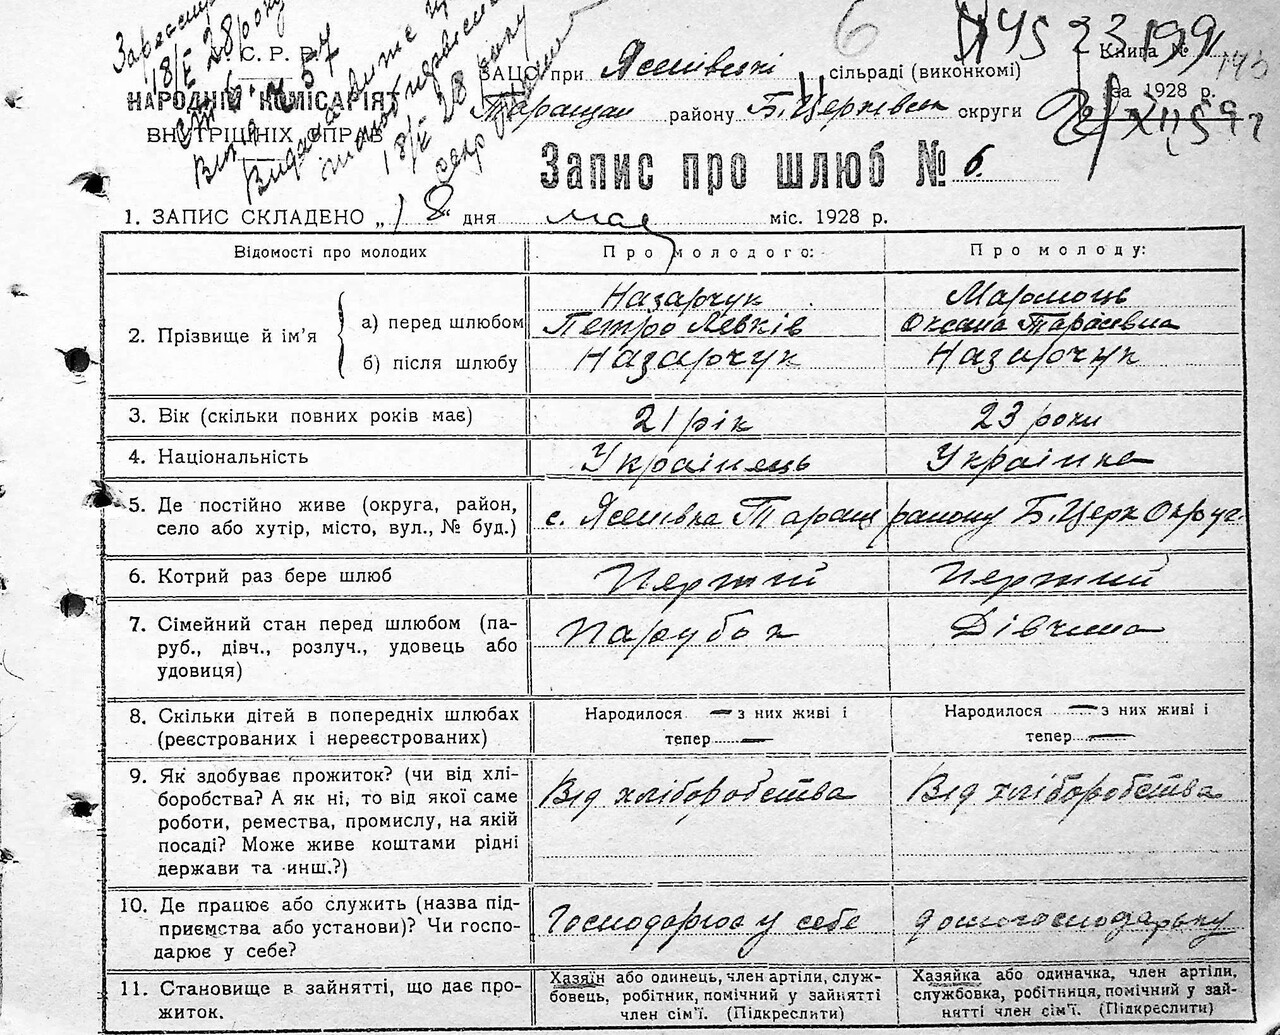 6
С. Р. Р.
Книга №
НАРОДНІЙ КОМІСАРІЯТ
ВНУТРІШНІХ СПРАВ
ЗАЦС при Ясенівській сільраді (виконкомі)
за 1928 р.
Таращан району Б.Церківск округи
Запис про шлюб № 6.
1. ЗАПИС СКЛАДЕНО „18“ дня мая міс. 1928 р.
Відомості про молодих
Про молодого:
Про молоду:
2. Прізвище й ім'я
а) перед шлюбом
Назарчук
Петро Левків
Оксана Тарасівна
б) після шлюбу
Назарчук
Назарчук
3. Вік (скільки повних років має)
21 рік
23 роки
4. Національність
Українець
Українка
5. Де постійно живе (округа, район,
село або хутір, місто, вул., № буд.)
с. Ясенівка Таращ району Б.Церк Округ
6. Котрий раз бере шлюб
Перший
Перший
7. Сімейний стан перед шлюбом (па-
руб., дівч., розлуч., удовець або
удовиця)
Парубок
Дівчина
8. Скільки дітей в попередніх шлюбах
(реєстрованих і нереєстрованих)
Народилося — з них живі і
тепер —
Народилося — з них живі і
тепер —
9. Як здобуває прожиток? (чи від хлі-
боробства? А як ні, то від якої саме
роботи, ремества, промислу, на якій
посаді? Може живе коштами рідні
держави та инш.?)
Від хліборобства
Від хліборобства
10. Де працює або служить (назва під-
приємства або установи)? Чи госпо-
дарює у себе?
Господарює у себе
11. Становище в зайнятті, що дає про-
житок.
Хазяїн або одинець, член артіли, служ-
бовець, робітник, помічний у зайнятті
член сім'ї. (Підкреслити)
Хазяйка або одиначка, член артіли,
службовка, робітниця, помічний у зай-
нятті член сім'ї. (Підкреслити)